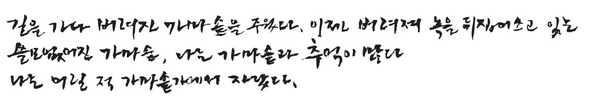 길을 가다 버려진 가마솥을 주웠다. 이제는 버려져 녹을 뒤집어쓰고 있는
쓸모없어진 가마솥, 나는 가마솥과 추억이 많다
나는 어릴 적 가마솥가에서 자랐다.